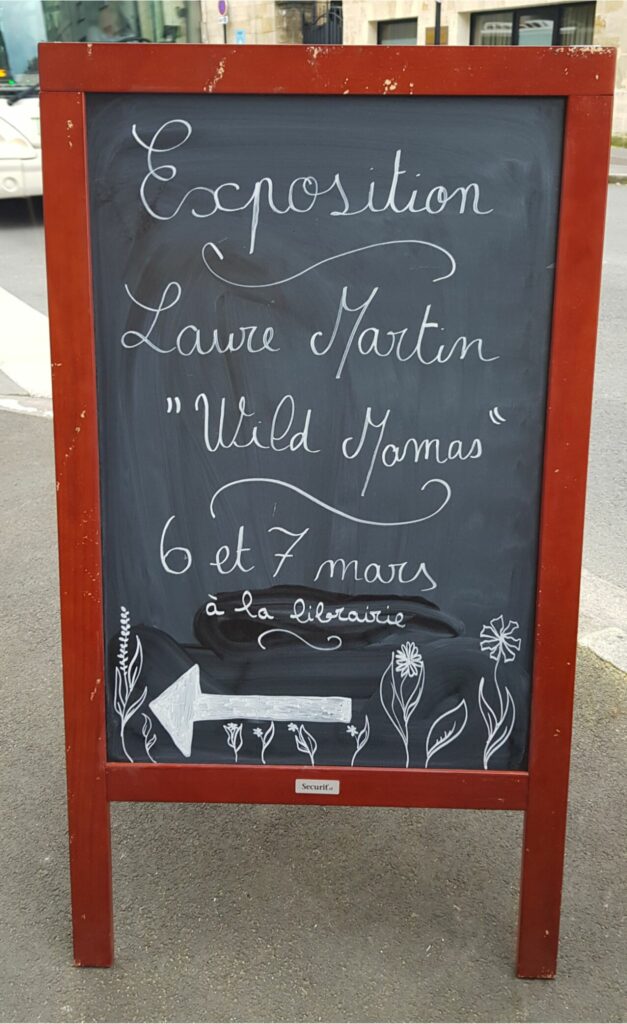 Exposition
Laure Martin
"Wild Mamas"
6 et 7 mars
à la librairie
Securit